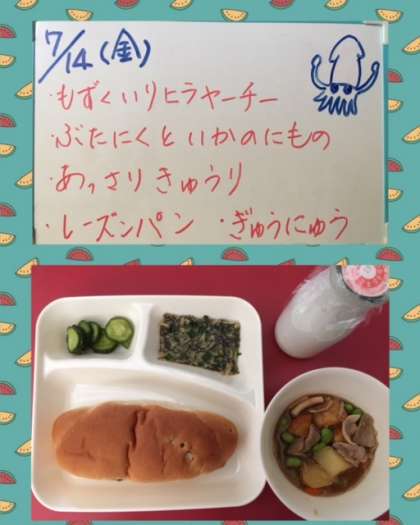 7/14(金)
・もずくいりヒラヤーチー
・ぶたにくといかのにもの
・あっさりきゅうり
・レーズンパン ・ぎゅうにゅう